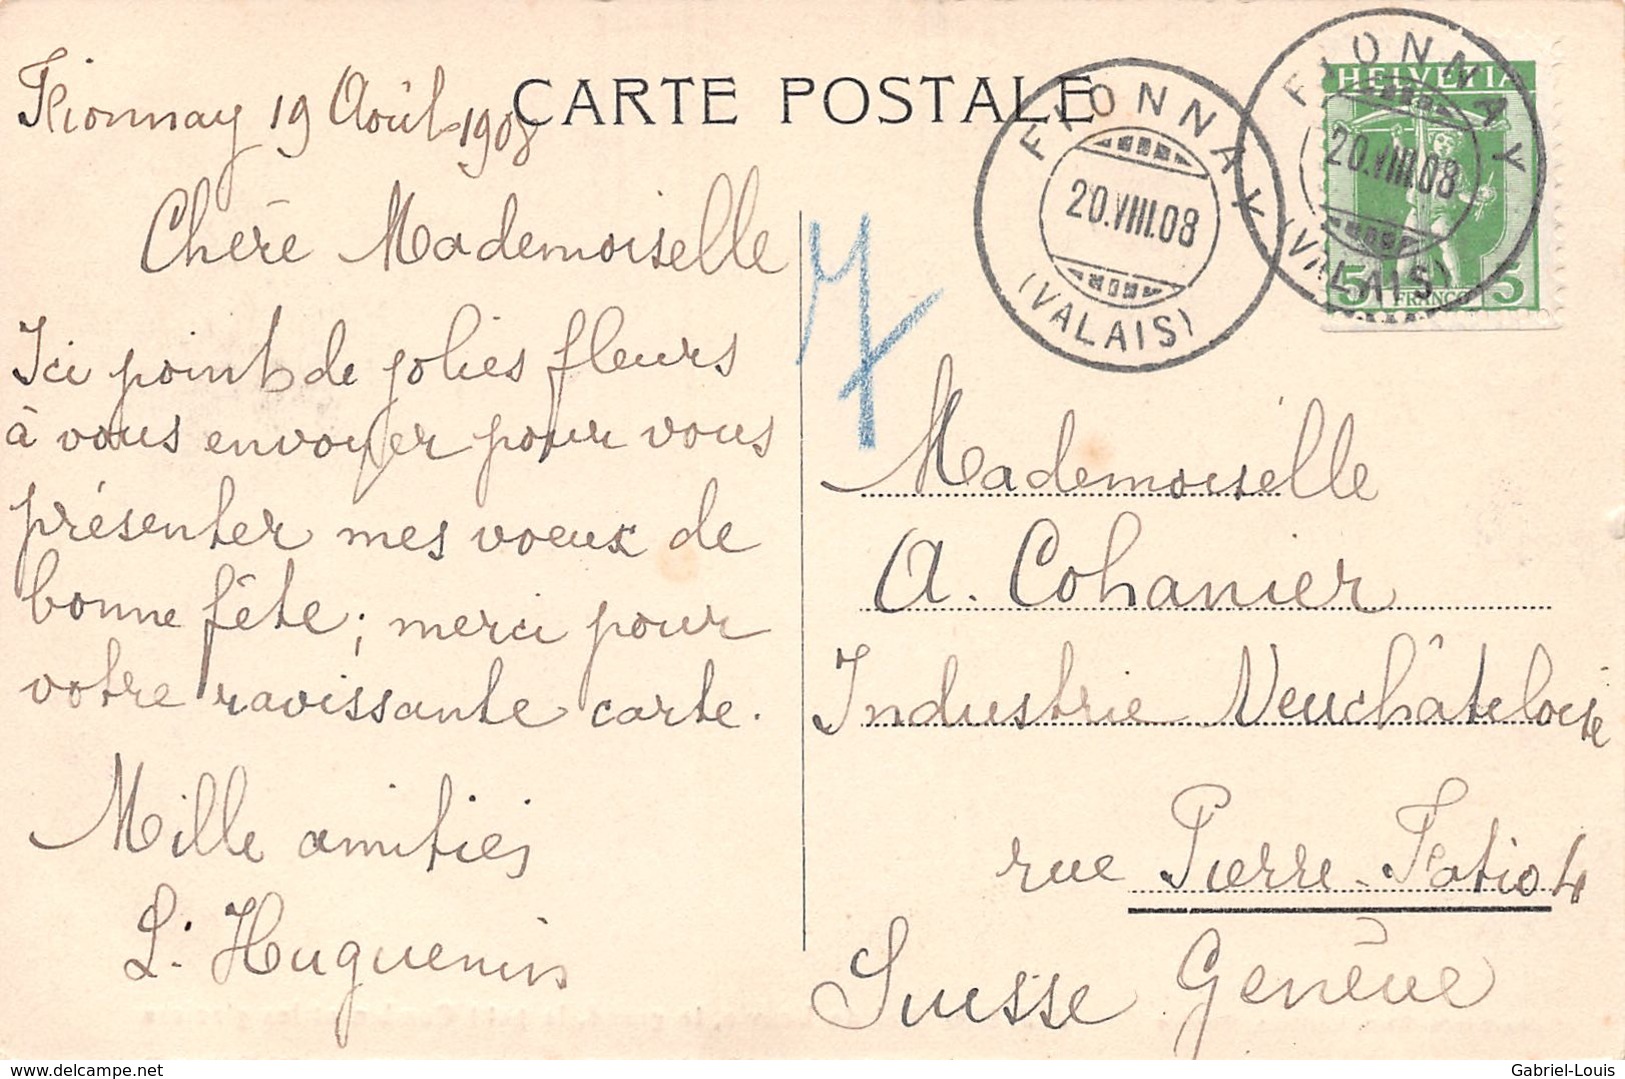 CARTE POSTALE
Fionnay 19 Août 1908
Chère Mademoiselle
Ici point de jolies fleurs
à vous envoyer pour vous
présenter mes voeux de
bonne fête; merci pour
votre ravissante carte.
Mille amitiés
L. Huguenin
FIONNAY
20.VIII.08
(VALAIS)
FIONNAY
20.VIII.08
(VALAIS)
HELVETIA
5 FRANCO 5
Mademoiselle
A. Cohanier
Industrie Neuchâteloise
rue Pierre-Fatio 4
Suisse Genève
delcampe.net
Gabriel-Louis